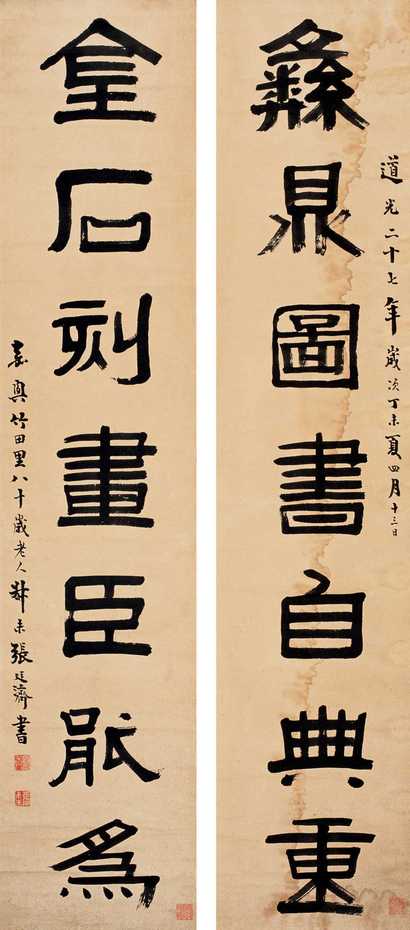 道光二十七年歲次丁未夏四月十三日
彝鼎圖書自典重
金石刻畫臣能為
嘉興竹田里八十歲老人叔未張廷濟書